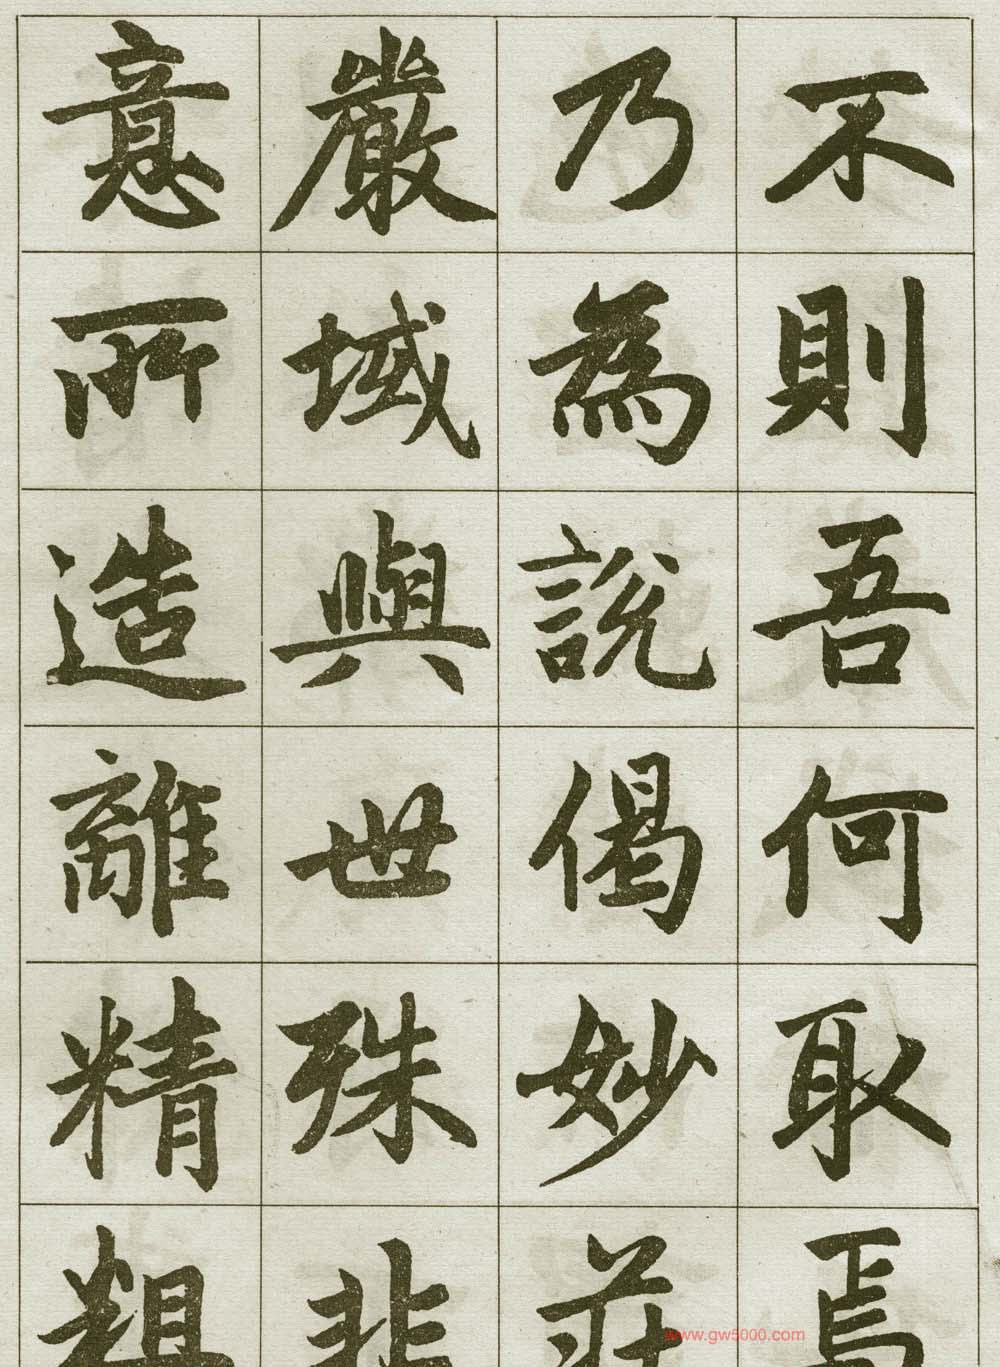 不則吾何取焉
乃為說偈妙莊
嚴域與世殊非
意所造離精粗
www.gw5000.com